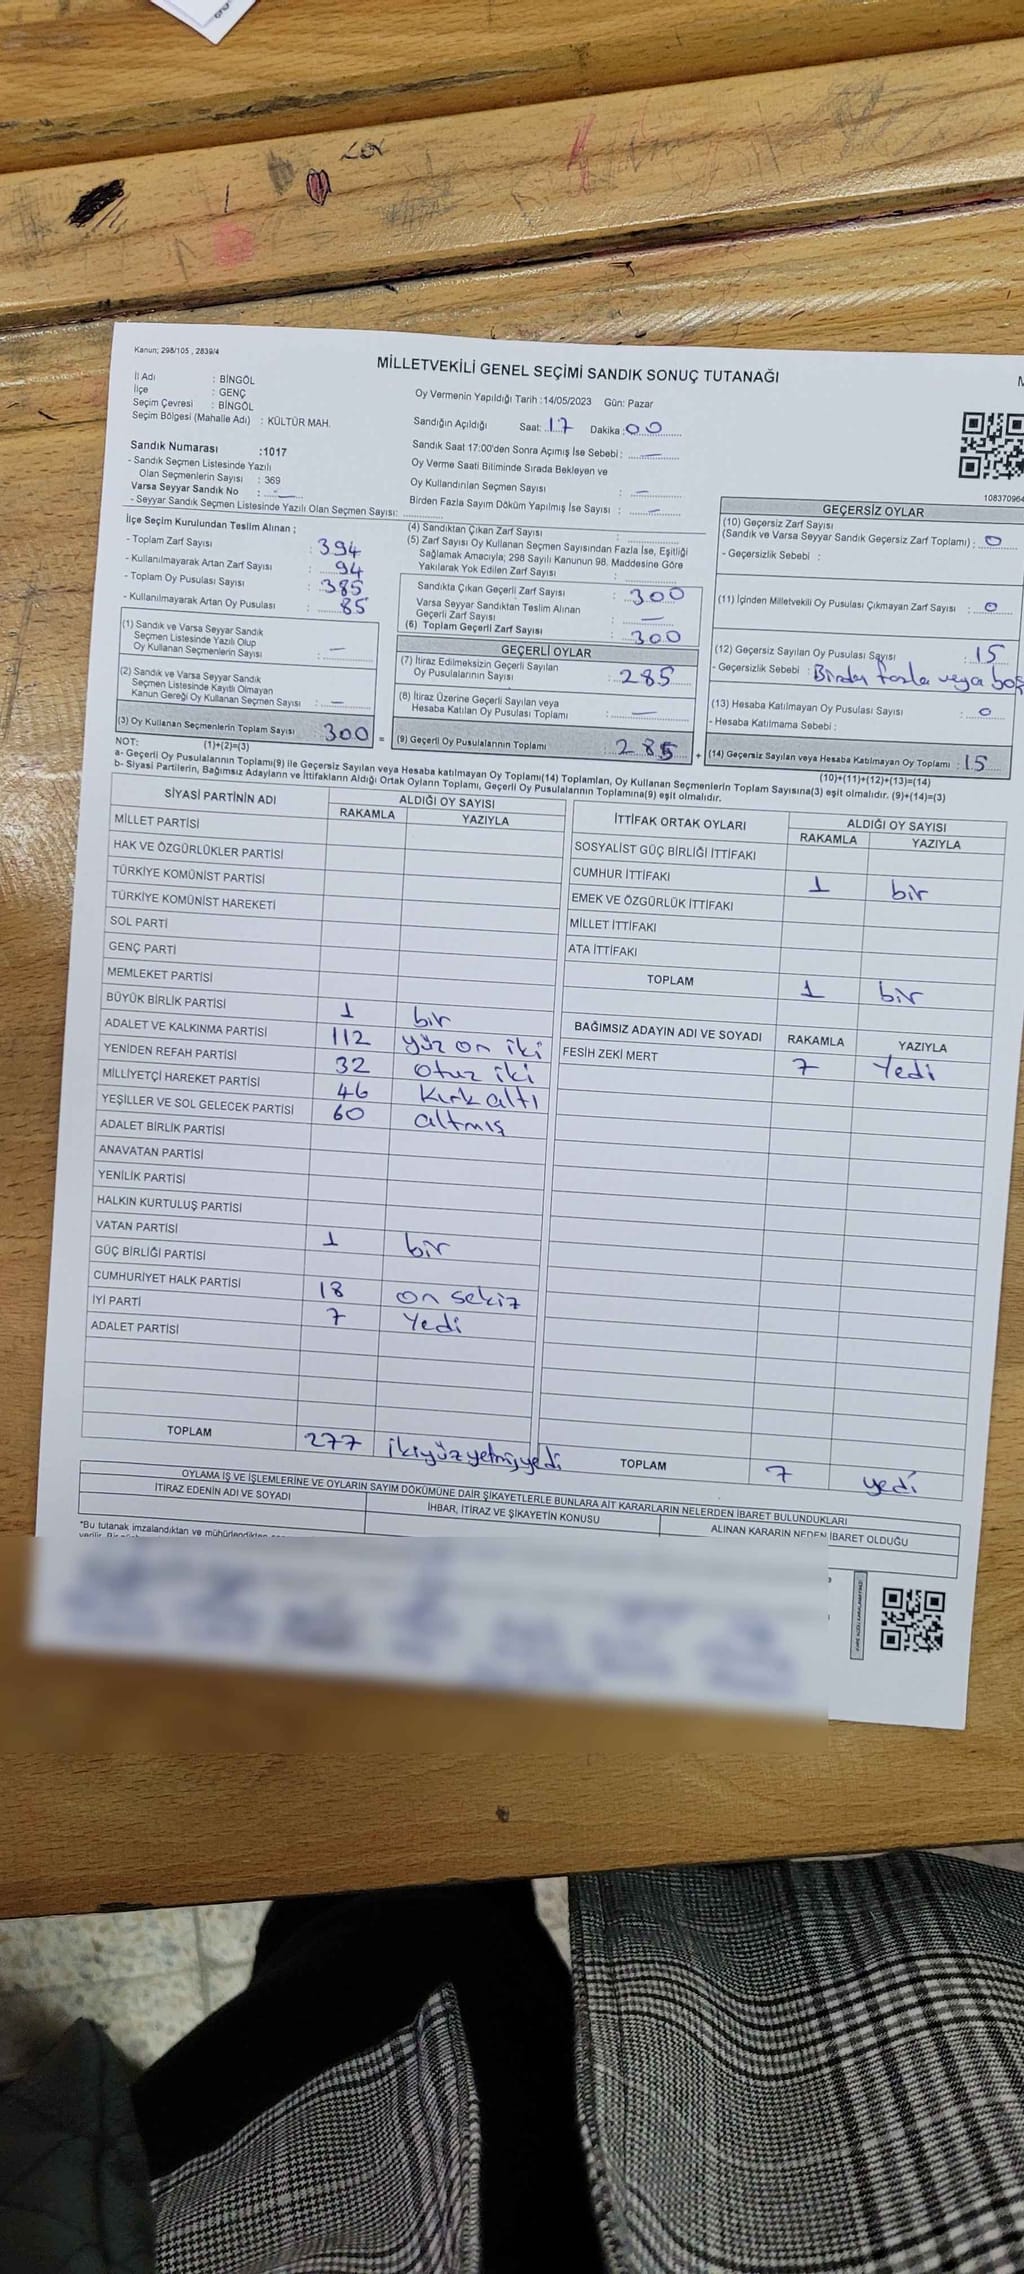 Kanun; 298/105 , 2839/4
MİLLETVEKİLİ GENEL SEÇİMİ SANDIK SONUÇ TUTANAĞI
İl Adı : BİNGÖL
İlçe : GENÇ
Seçim Çevresi : BİNGÖL
Seçim Bölgesi (Mahalle Adı) : KÜLTÜR MAH.
Sandık Numarası :1017
- Sandık Seçmen Listesinde Yazılı
Olan Seçmenlerin Sayısı : 369
Varsa Seyyar Sandık No : —
- Seyyar Sandık Seçmen Listesinde Yazılı Olan Seçmen Sayısı:
Oy Vermenin Yapıldığı Tarih :14/05/2023 Gün: Pazar
Sandığın Açıldığı Saat: 17 Dakika: 00
Sandık Saat 17:00'den Sonra Açımış İse Sebebi : —
Oy Verme Saati Bitiminde Sırada Bekleyen ve
Oy Kullandırılan Seçmen Sayısı : —
Birden Fazla Sayım Döküm Yapılmış İse Sayısı : —
108370964
İlçe Seçim Kurulundan Teslim Alınan ;
- Toplam Zarf Sayısı : 394
- Kullanılmayarak Artan Zarf Sayısı : 94
- Toplam Oy Pusulası Sayısı : 385
- Kullanılmayarak Artan Oy Pusulası : 85
(1) Sandık ve Varsa Seyyar Sandık
Seçmen Listesinde Yazılı Olup
Oy Kullanan Seçmenlerin Sayısı : —
(2) Sandık ve Varsa Seyyar Sandık
Seçmen Listesinde Kayıtlı Olmayan
Kanun Gereği Oy Kullanan Seçmen Sayısı : —
(3) Oy Kullanan Seçmenlerin Toplam Sayısı : 300 =
(1)+(2)=(3)
(4) Sandıktan Çıkan Zarf Sayısı :
(5) Zarf Sayısı Oy Kullanan Seçmen Sayısından Fazla İse, Eşitliği
Sağlamak Amacıyla; 298 Sayılı Kanunun 98. Maddesine Göre
Yakılarak Yok Edilen Zarf Sayısı :
Sandıkta Çıkan Geçerli Zarf Sayısı : 300
Varsa Seyyar Sandıktan Teslim Alınan
Geçerli Zarf Sayısı : —
(6) Toplam Geçerli Zarf Sayısı : 300
GEÇERLİ OYLAR
(7) İtiraz Edilmeksizin Geçerli Sayılan
Oy Pusulalarının Sayısı : 285
(8) İtiraz Üzerine Geçerli Sayılan veya
Hesaba Katılan Oy Pusulası Toplamı : —
(9) Geçerli Oy Pusulalarının Toplamı : 285 +
GEÇERSİZ OYLAR
(10) Geçersiz Zarf Sayısı
(Sandık ve Varsa Seyyar Sandık Geçersiz Zarf Toplamı) : 0
- Geçersizlik Sebebi :
(11) İçinden Milletvekili Oy Pusulası Çıkmayan Zarf Sayısı : 0
(12) Geçersiz Sayılan Oy Pusulası Sayısı : 15
- Geçersizlik Sebebi : Birden fazla veya boş
(13) Hesaba Katılmayan Oy Pusulası Sayısı : 0
- Hesaba Katılmama Sebebi :
(14) Geçersiz Sayılan veya Hesaba Katılmayan Oy Toplamı : 15
(10)+(11)+(12)+(13)=(14)
NOT:
a- Geçerli Oy Pusulalarının Toplamı(9) ile Geçersiz Sayılan veya Hesaba katılmayan Oy Toplamı(14) Toplamları, Oy Kullanan Seçmenlerin Toplam Sayısına(3) eşit olmalıdır. (9)+(14)=(3)
b- Siyasi Partilerin, Bağımsız Adayların ve İttifakların Aldığı Ortak Oyların Toplamı, Geçerli Oy Pusulalarının Toplamına(9) eşit olmalıdır.
SİYASİ PARTİNİN ADI ALDIĞI OY SAYISI
RAKAMLA YAZIYLA
MİLLET PARTİSİ
HAK VE ÖZGÜRLÜKLER PARTİSİ
TÜRKİYE KOMÜNİST PARTİSİ
TÜRKİYE KOMÜNİST HAREKETİ
SOL PARTİ
GENÇ PARTİ
MEMLEKET PARTİSİ
BÜYÜK BİRLİK PARTİSİ 1 bir
ADALET VE KALKINMA PARTİSİ 112 yüz on iki
YENİDEN REFAH PARTİSİ 32 otuz iki
MİLLİYETÇİ HAREKET PARTİSİ 46 kırk altı
YEŞİLLER VE SOL GELECEK PARTİSİ 60 altmış
ADALET BİRLİK PARTİSİ
ANAVATAN PARTİSİ
YENİLİK PARTİSİ
HALKIN KURTULUŞ PARTİSİ
VATAN PARTİSİ 1 bir
GÜÇ BİRLİĞİ PARTİSİ
CUMHURİYET HALK PARTİSİ 18 on sekiz
İYİ PARTİ 7 Yedi
ADALET PARTİSİ
TOPLAM 277 ikiyüzyetmişyedi
İTTİFAK ORTAK OYLARI ALDIĞI OY SAYISI
RAKAMLA YAZIYLA
SOSYALİST GÜÇ BİRLİĞİ İTTİFAKI
CUMHUR İTTİFAKI 1 bir
EMEK VE ÖZGÜRLÜK İTTİFAKI
MİLLET İTTİFAKI
ATA İTTİFAKI
TOPLAM 1 bir
BAĞIMSIZ ADAYIN ADI VE SOYADI RAKAMLA YAZIYLA
FESİH ZEKİ MERT 7 Yedi
TOPLAM 7 yedi
OYLAMA İŞ VE İŞLEMLERİNE VE OYLARIN SAYIM DÖKÜMÜNE DAİR ŞİKAYETLERLE BUNLARA AİT KARARLARIN NELERDEN İBARET BULUNDUKLARI
İTİRAZ EDENİN ADI VE SOYADI İHBAR, İTİRAZ VE ŞİKAYETİN KONUSU ALINAN KARARIN NEDEN İBARET OLDUĞU
"Bu tutanak imzalandıktan ve mühürlendikten